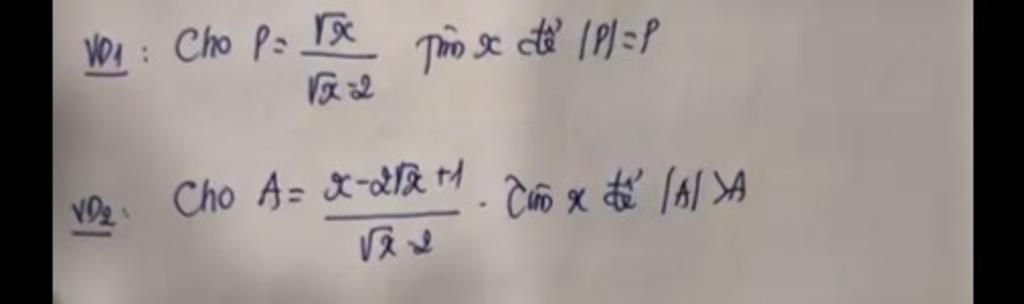 VD1: Cho P = √x / √x-2 Tìm x để |P|=P
VD2: Cho A = x-2√x+1 / √x-2 . Tìm x để |A|>A